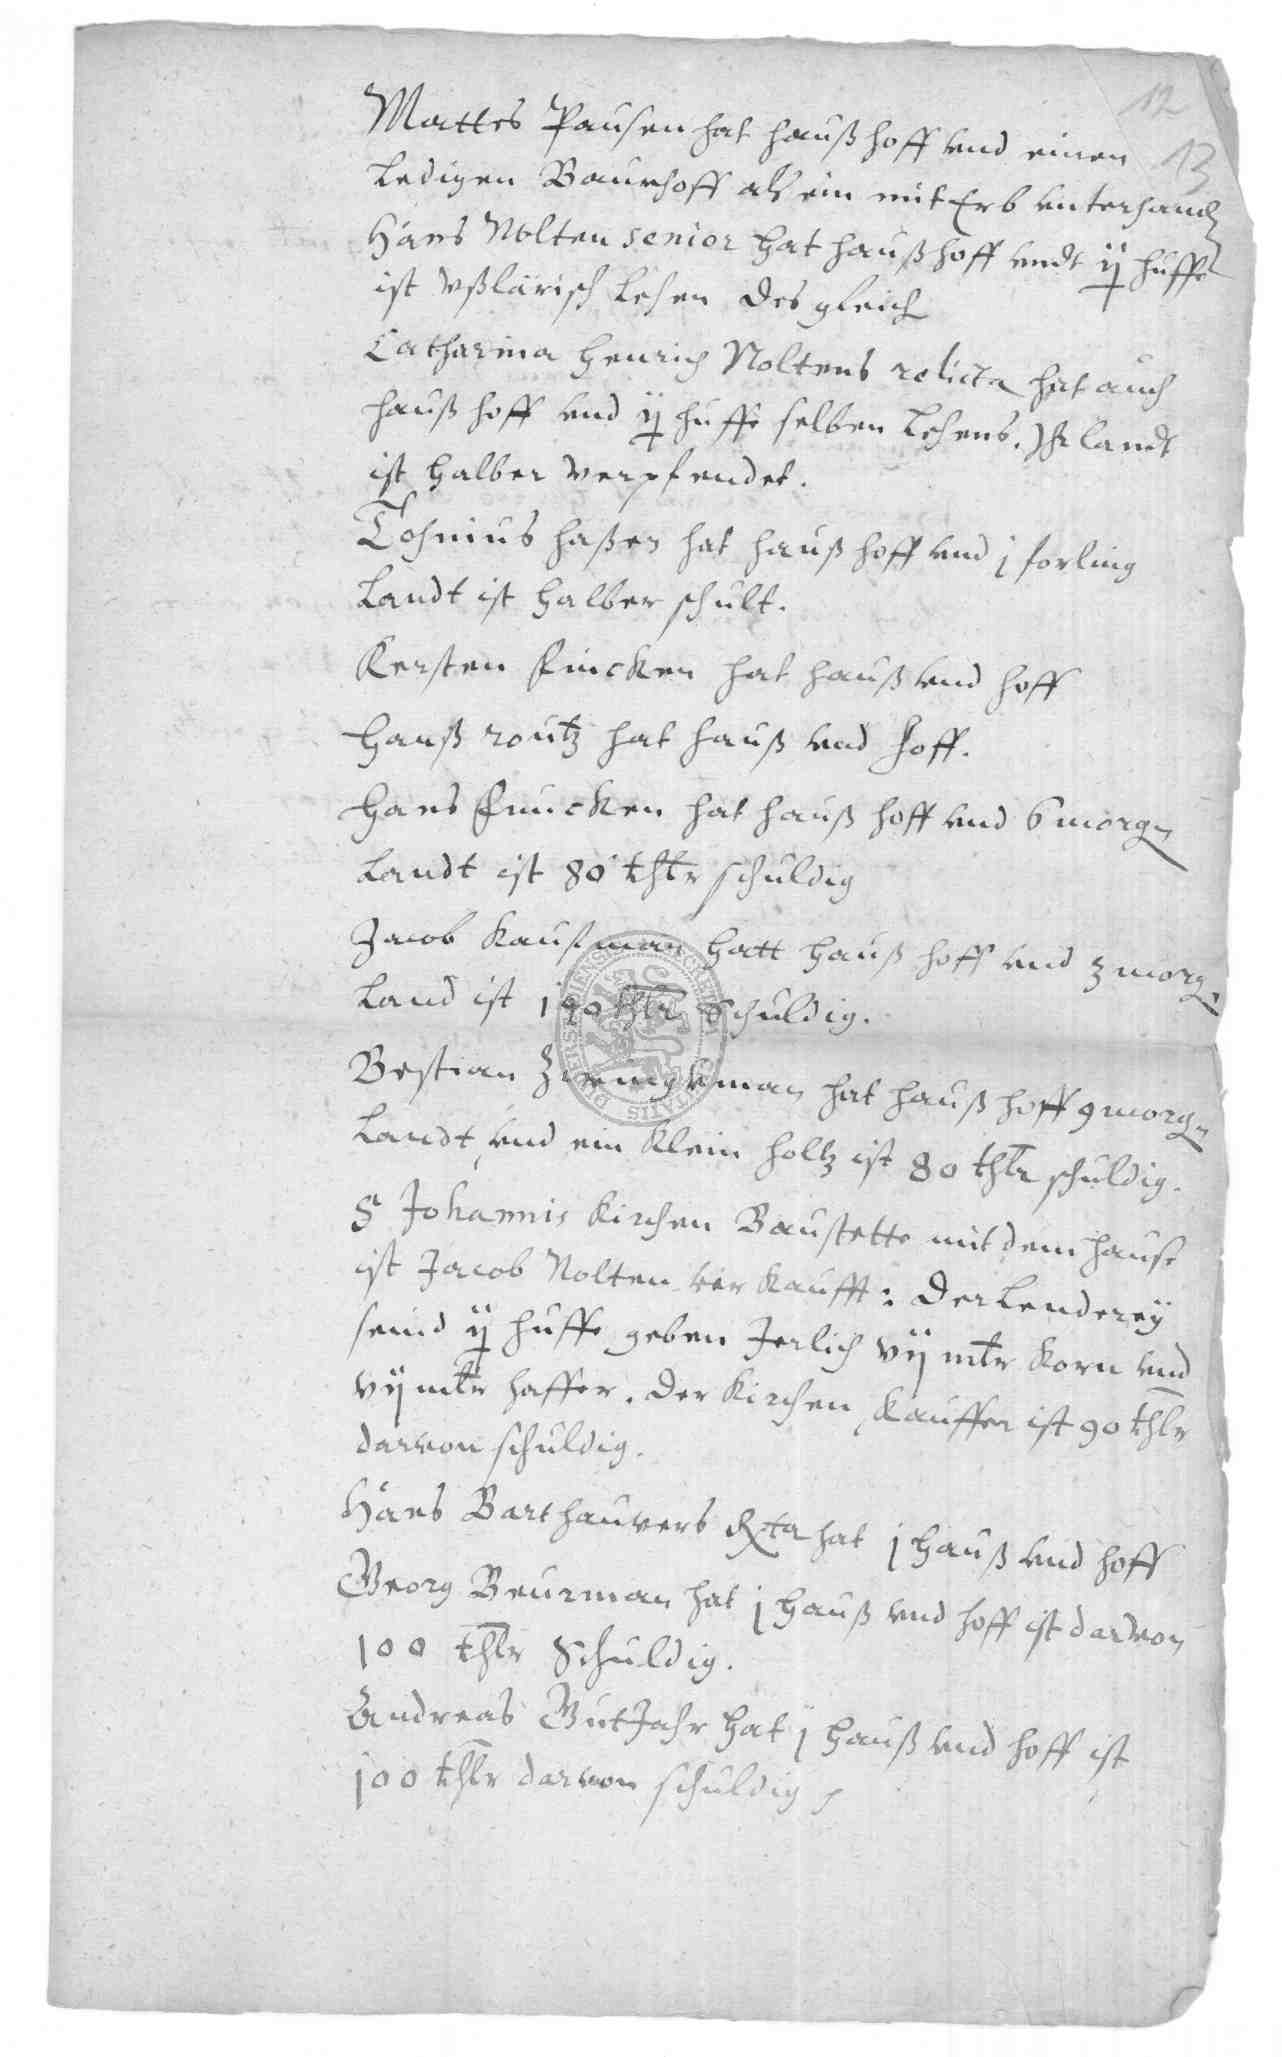 12
13
Mattes Pausen hat hauß hoff vnd einen
Ledigen Baurhoff als ein mit Erb vnterhand
Hans Nolten senior hat hauß hoff vndt ij huffe
ist vßlarisch Lehen des gleich
Catharina Henrich Noltens relicta hat auch
hauß hoff vnd ij huffe selben Lehens. Ihr landt
ist halber verpfendet.
Tohnius haßen hat hauß hoff vnd j forling
Landt ist halber schult.
Kersten fincken hat hauß vnd hoff
Hanß routz hat hauß vnd hoff.
Hans funcken hat hauß hoff vnd 6 morgn
Landt ist 80 thlr schuldig
Jacob Kaufman hatt hauß hoff vnd 3 morg.
Land ist 190 thlr schuldig.
Bestian hat hauß hoff 9 morgn
Landt, vnd ein klein holtz ist 80 thlr schuldig.
S Johannis Kirchen Baustette mit dem hause
ist Jacob Nolten verkaufft: Der Lenderey
seind ij huffe geben Jerlich vij mtr Korn vnd
vij mtr haffer. Der Kirchen Kauffer ist 90 thlr
darvon schuldig.
Hans Barthauwers Rta hat j hauß vnd hoff
Georg Beurman hat j hauß vnd hoff ist darvon
100 thlr schuldig.
Andreas Gutjahr hat j hauß vnd hoff ist
100 thlr darvon schuldig